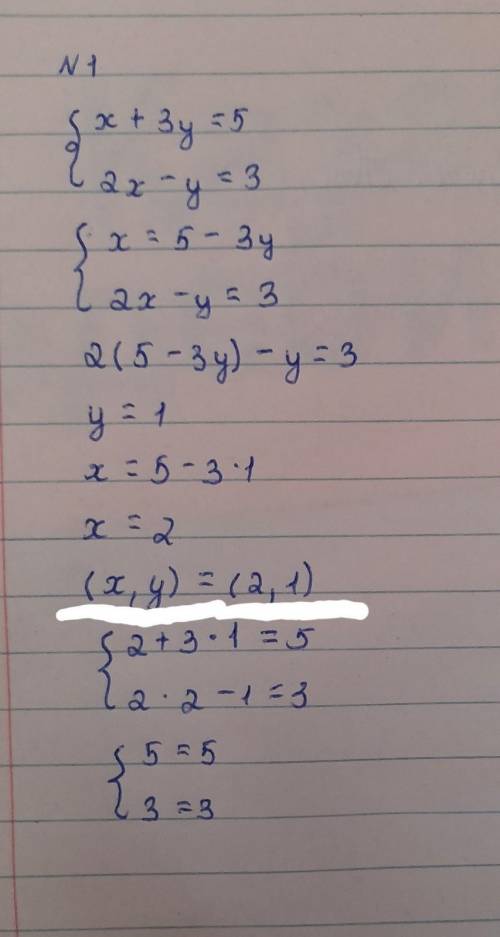 N1
x + 3y = 5
2x - y = 3
x = 5 - 3y
2x - y = 3
2(5 - 3y) - y = 3
y = 1
x = 5 - 3·1
x = 2
(x, y) = (2, 1)
2 + 3·1 = 5
2·2 - 1 = 3
5 = 5
3 = 3